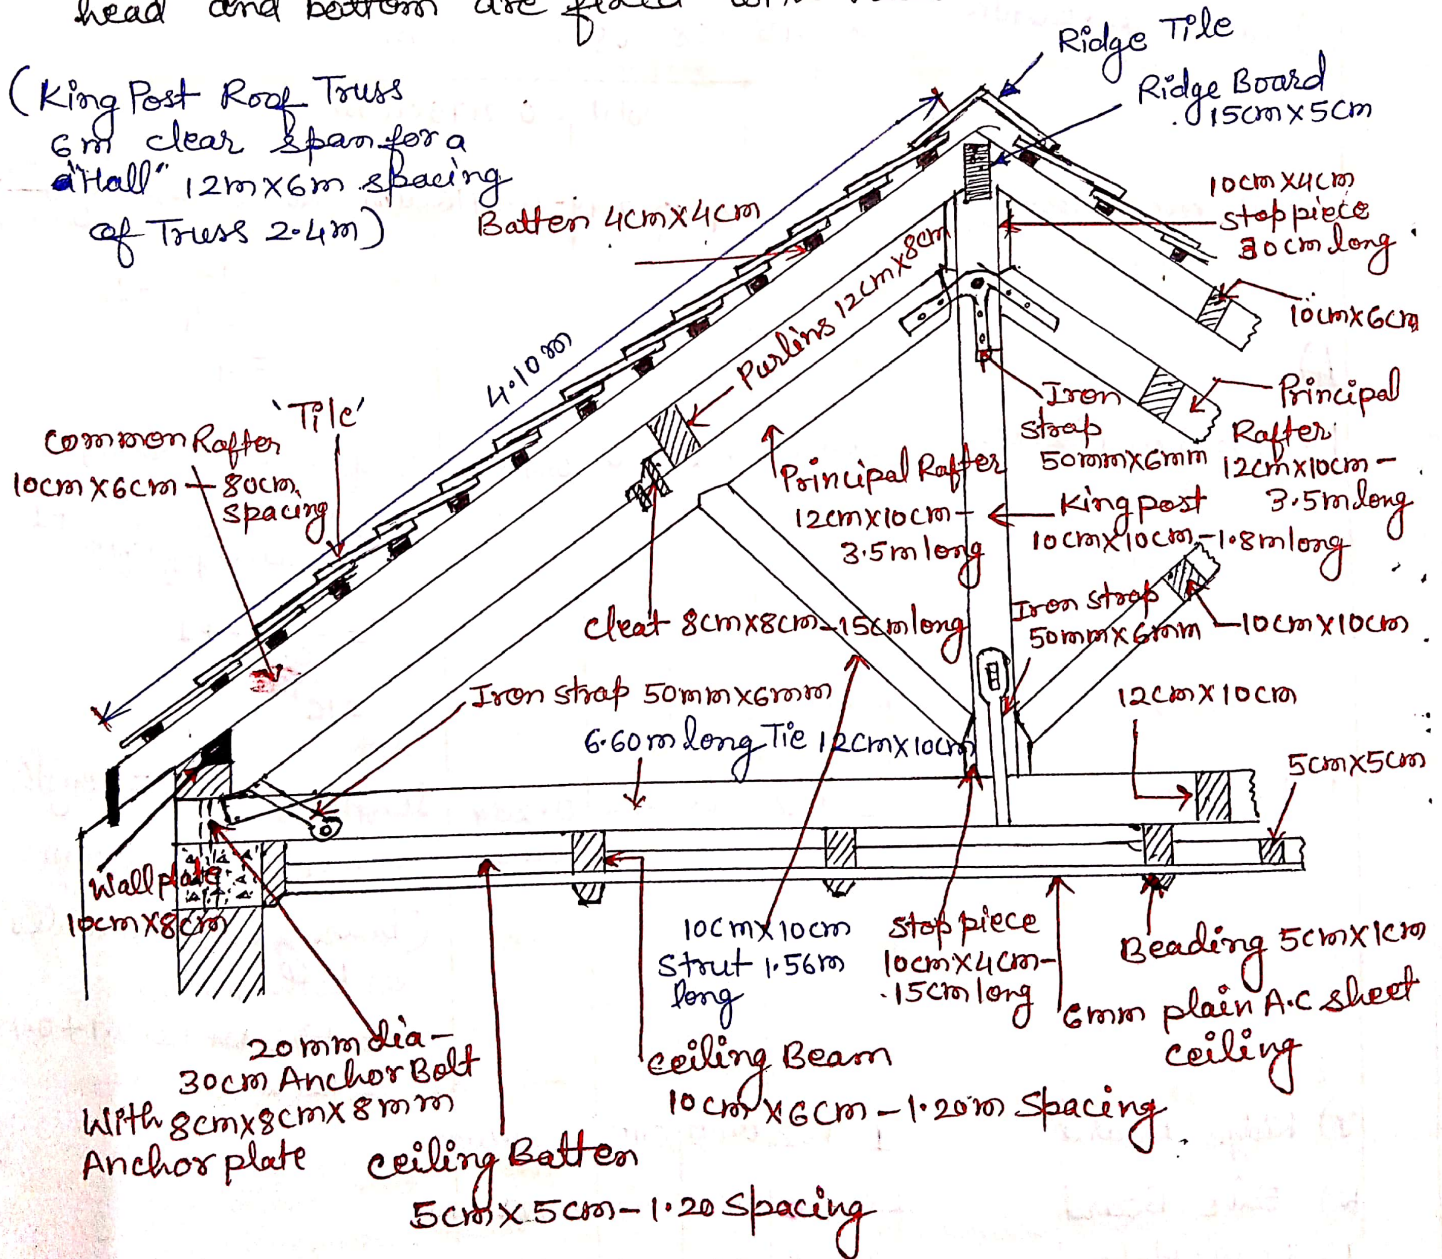 head and bottom are fixed with
(King Post Roof Truss
6m clear span for a
"Hall" 12m×6m spacing
of Truss 2.4m)
Ridge Tile
Ridge Board
15cm×5cm
Batten 4cm×4cm
10cm×4cm
stop piece
30cm long
10cm×6cm
Purlins 12cm×8cm
4.10m
'Tile'
Common Rafter
10cm×6cm – 80cm
spacing
Iron
strap
50mm×6mm
Principal
Rafter
12cm×10cm –
3.5m long
Principal Rafter
12cm×10cm –
3.5m long
King post
10cm×10cm – 1.8m long
Cleat 8cm×8cm – 15cm long
Iron strap
50mm×6mm
10cm×10cm
Iron strap 50mm×6mm
6.60m long Tie 12cm×10cm
12cm×10cm
5cm×5cm
Wall plate
10cm×8cm
10cm×10cm
Strut 1.56m
long
Stop piece
10cm×4cm –
15cm long
Beading 5cm×1cm
6mm plain A.C sheet
ceiling
20mm dia –
30cm Anchor Bolt
With 8cm×8cm×8mm
Anchor plate
Ceiling Beam
10cm×6cm – 1.20m Spacing
Ceiling Batten
5cm×5cm – 1.20 Spacing